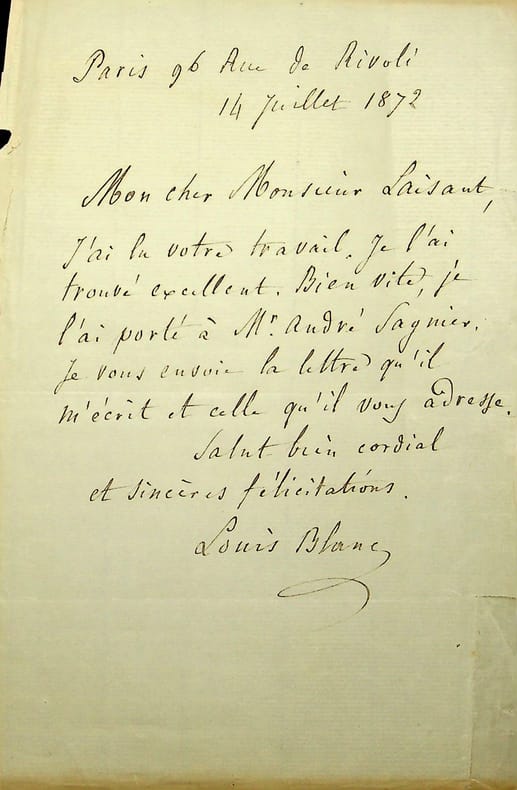 Paris 96 Rue de Rivoli
14 Juillet 1872
Mon cher Monsieur Laisant,
J'ai lu votre travail. Je l'ai
trouvé excellent. Bien vite, je
l'ai porté à Mr. André Sagnier.
Je vous envoie la lettre qu'il
m'écrit et celle qu'il vous adresse.
Salut bien cordial
et sincères félicitations.
Louis Blanc